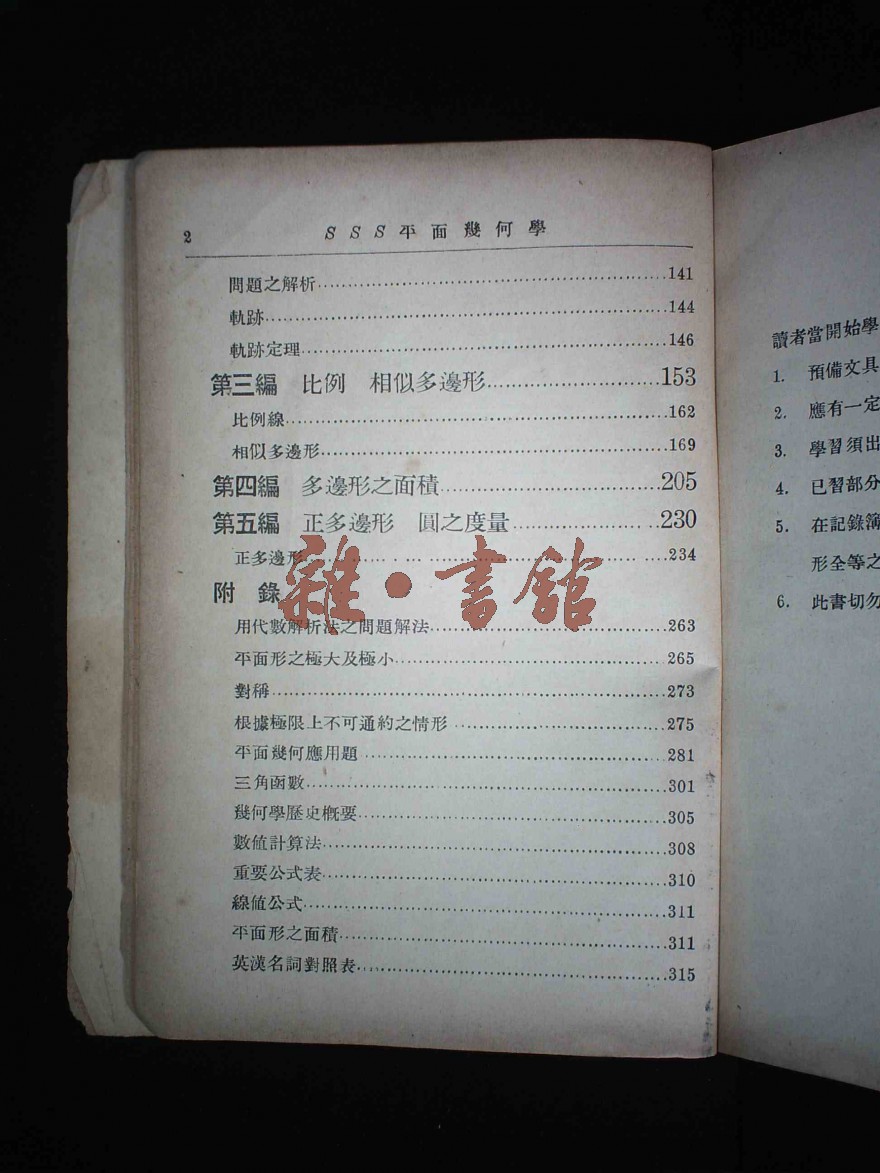 2 SSS平面幾何學
問題之解析 141
軌跡 144
軌跡定理 146
第三編 比例 相似多邊形 153
比例線 162
相似多邊形 169
第四編 多邊形之面積 205
第五編 正多邊形 圓之度量 230
正多邊形 234
附錄
用代數解析法之問題解法 263
平面形之極大及極小 265
對稱 273
根據極限上不可通約之情形 275
平面幾何應用題 281
三角函數 301
幾何學歷史概要 305
數值計算法 308
重要公式表 310
線值公式 311
平面形之面積 311
英漢名詞對照表 315
雜·書館
讀者當開始學
1. 預備文具
2. 應有一定
3. 學習須出
4. 已習部分
5. 在記錄簿
形全等之
6. 此書切勿